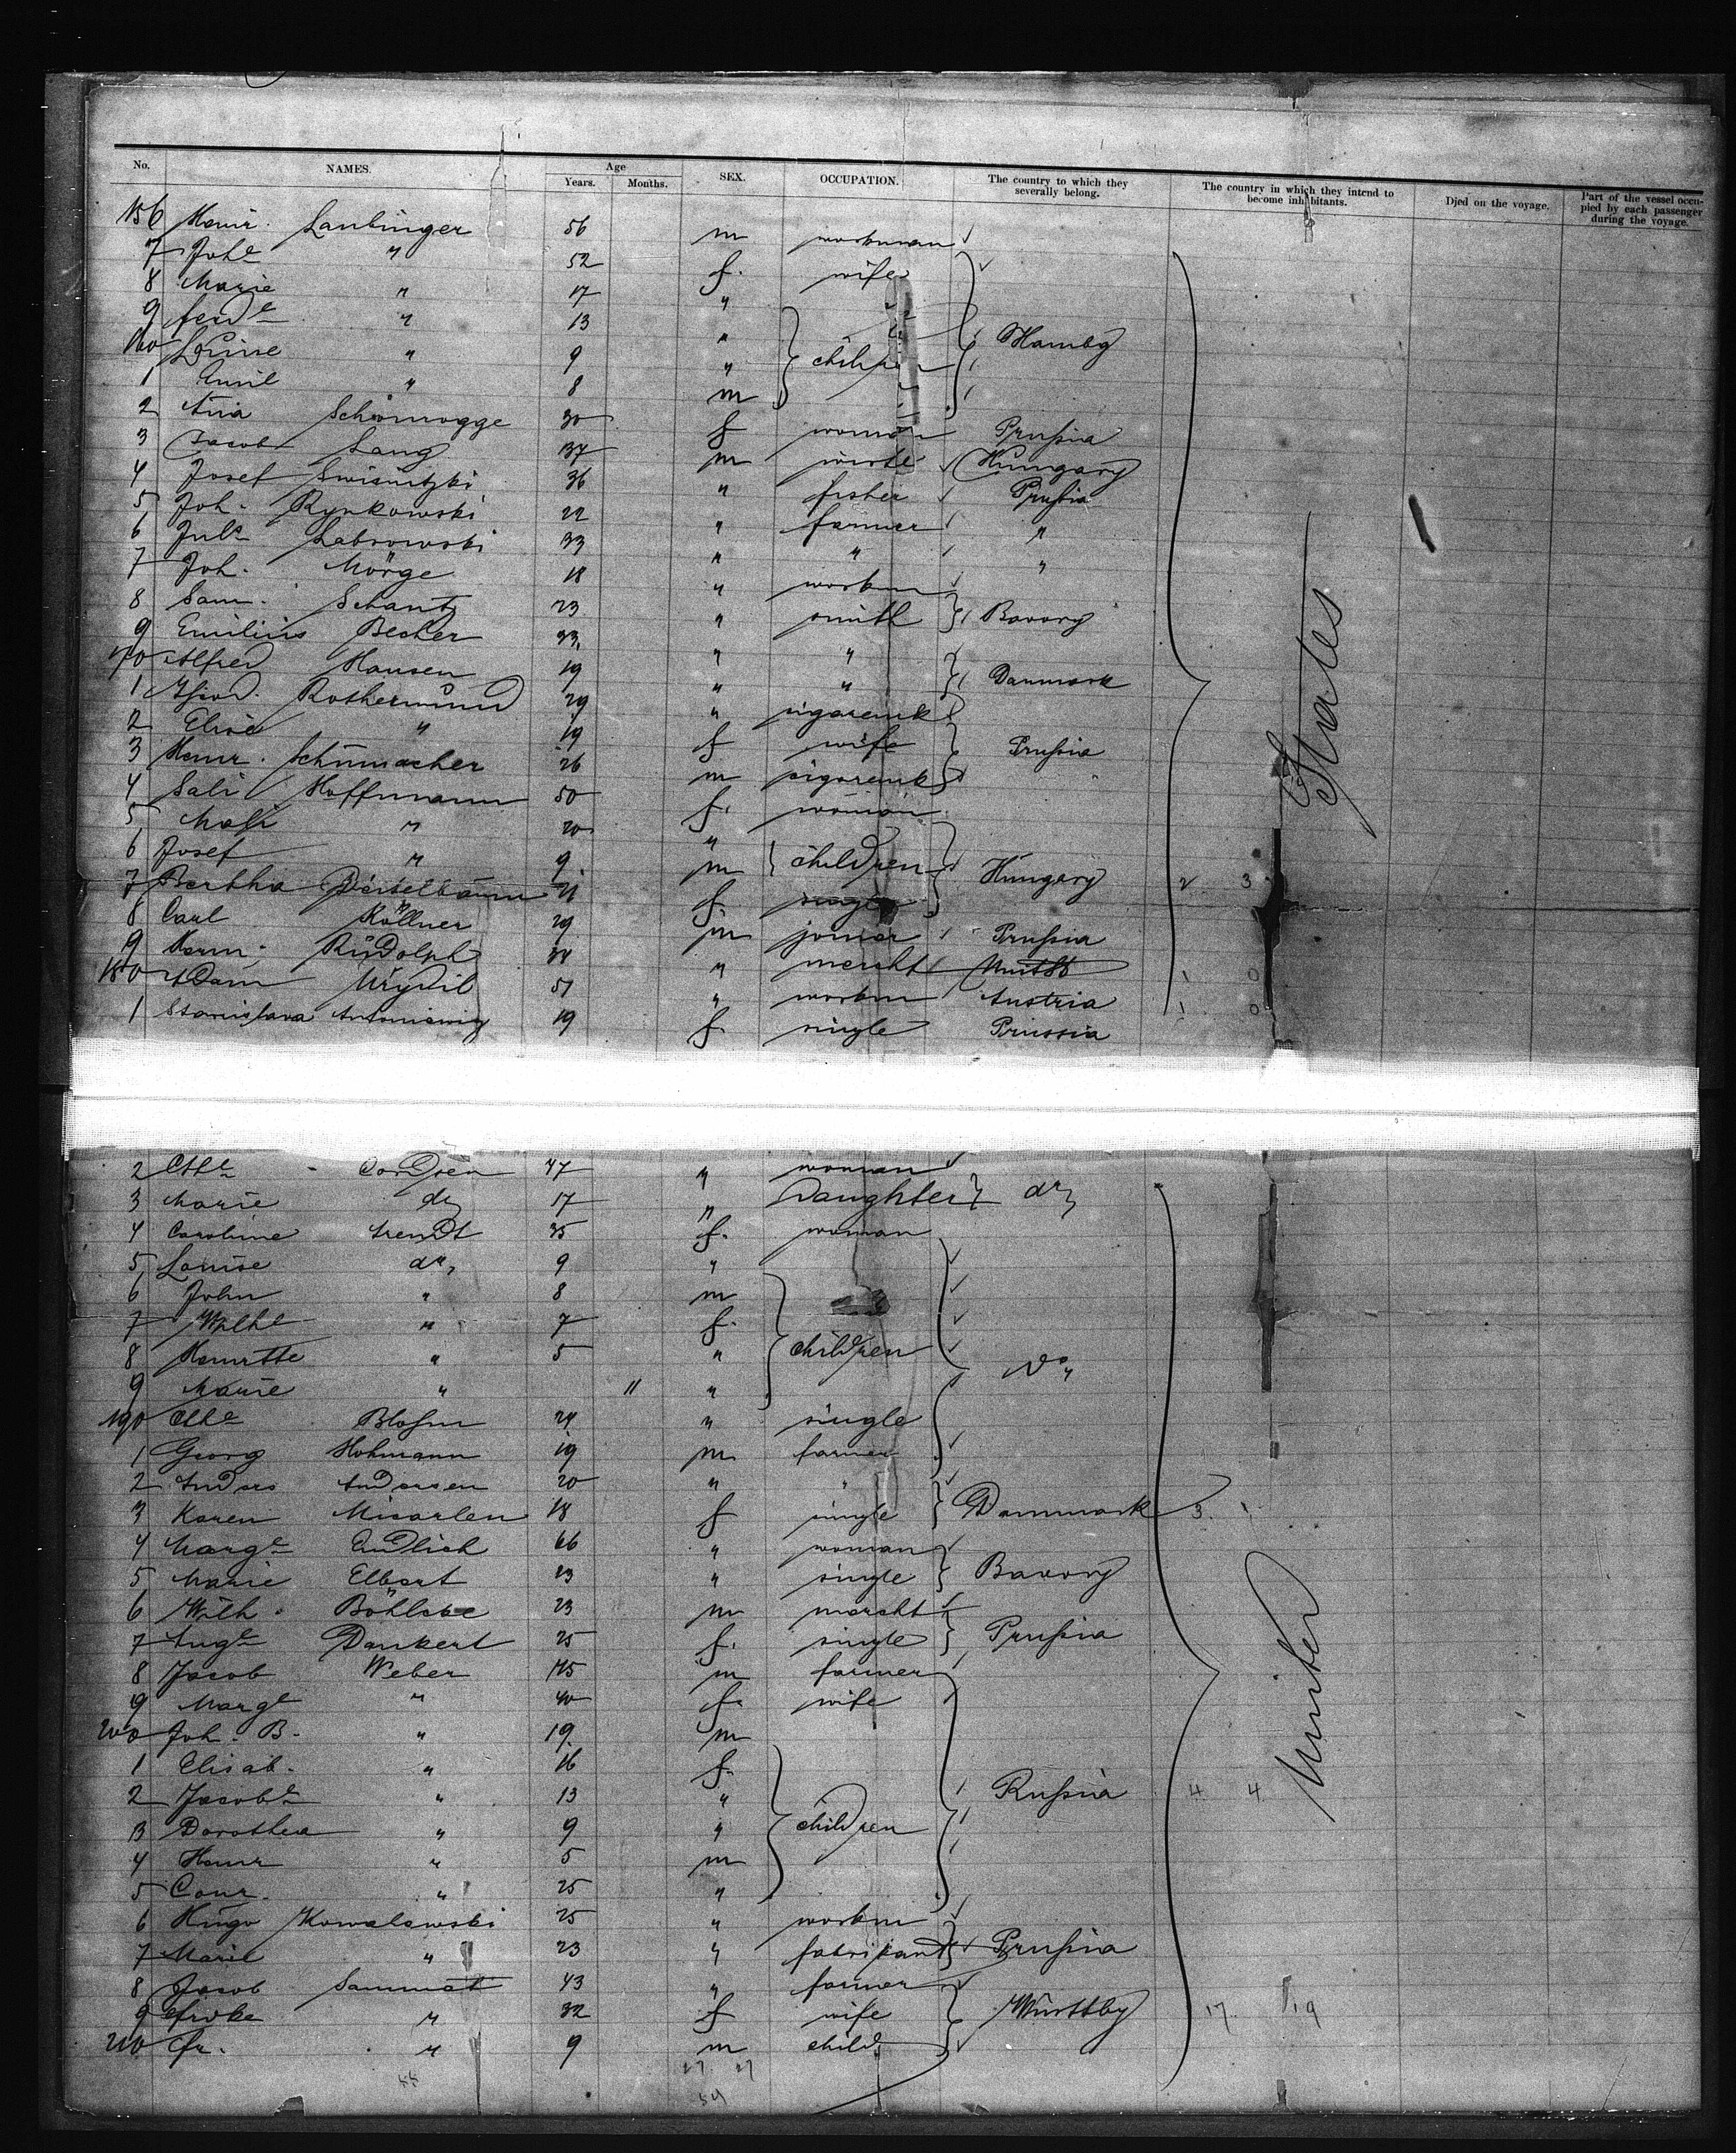 No. NAMES. Age Years. Months. SEX. OCCUPATION. The country to which they severally belong. The country in which they intend to become inhabitants. Died on the voyage. Part of the vessel occupied by each passenger during the voyage.
156 Heinr. Laubinger 56 m workman
7 Johe " 52 f. wife
8 Marie " 17 "
9 " 13 "
160 Louise " 9 " children Hambg
1 Emil " 8 m
2 Schönrogge 30 f woman Prussia
3 Jacob Lang 37 m Hungary
4 Josef 36 " fisher Prussia
5 Joh. Rynkowski 22 " farmer "
6 Juls Labrowski 33 " " "
7 Joh. Mörge 18 " workm
8 Sam. Schantz 23 " smith Bavory
9 Emilius Becher 33 " "
170 Alfred Hansen 19 " " Danmark
1 Rothermund 29 " sigaremk
2 Elise " 19 f wife Prussia
3 Heinr. Schumacher 26 m sigaremk
4 Sali Hoffmann 50 f. woman
5 " 20 "
6 Josef " 9 m children Hungary 2 3
7 Bertha 21 f. single
8 Carl Köllner 29 m joiner Prussia
9 Herm. Rudolph 34 " mercht
180 Adam 51 " workm Austria 1 0
1 Stanislava 19 f. single Prussia
States
2 47 " woman
3 Marie do 17 " Daughter do
4 Caroline Arendt 35 f. woman
5 Louise do 9 "
6 John " 8 m
7 Wilhe " 7 f.
8 " 5 " children do
9 Marie " 11 "
190 24 " single
1 Georg Hohmann 19 m farmer
2 Anders Andersen 20 " "
3 Karen 18 f single Danmark 3
4 Marge Endlich 66 " woman
5 Marie Elbert 23 " single Bavory
6 Wilh. 23 m mercht
7 Auge Dankert 25 f. single Prussia
8 Jacob Weber 45 m farmer
9 Marge " 40 f. wife
200 Joh. B. " 19 m
1 Elisab. " 16 f.
2 " 13 " Russia 4 4
3 Dorothea " 9 " children
4 Heinr " 5 m
5 Conr. " 25 "
6 Hugo Kowalewski 25 " workm
7 " 23 " fabrikant Prussia
8 Jacob 43 " farmer
9 " 32 f wife Württbg 17 19
210 Fr. " 9 m child
United